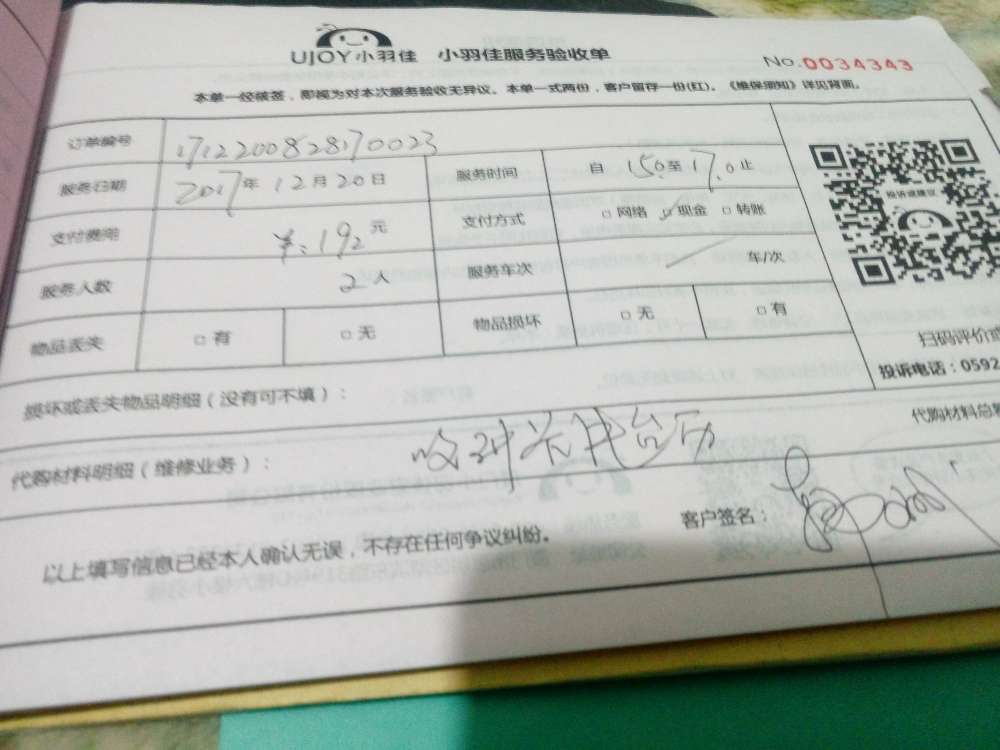 UJOY小羽佳 小羽佳服务验收单 No.0034343
本单一经破签，即视为对本次服务验收无异议。本单一式两份，客户留存一份(红)。《维保须知》详见背面。
订单编号 1712200828170023
服务日期 2017年12月20日 服务时间 自15.0至17.0止
支付费用 ¥:192元 支付方式 □网络 ☑现金 □转账
服务人数 2人 服务车次 车/次
物品丢失 □有 □无 物品损坏 □无 □有
投诉或建议
扫码评价或
投诉电话：0592
损坏或丢失物品明细（没有可不填）：
代购材料总
代购材料明细（维修业务）：
客户签名：
以上填写信息已经本人确认无误，不存在任何争议纠纷。